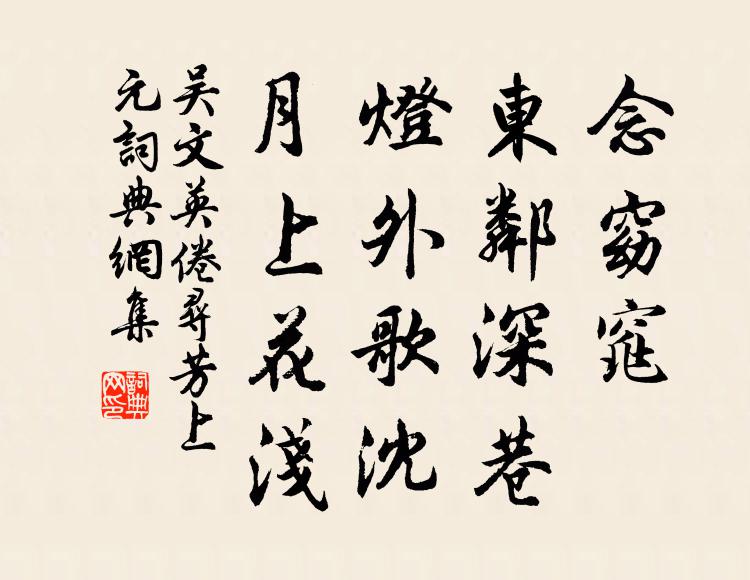 念窈窕
東鄰深巷
燈外歌沈
月上花淺
吳文英倦尋芳上
元詞典網集
詞典網印